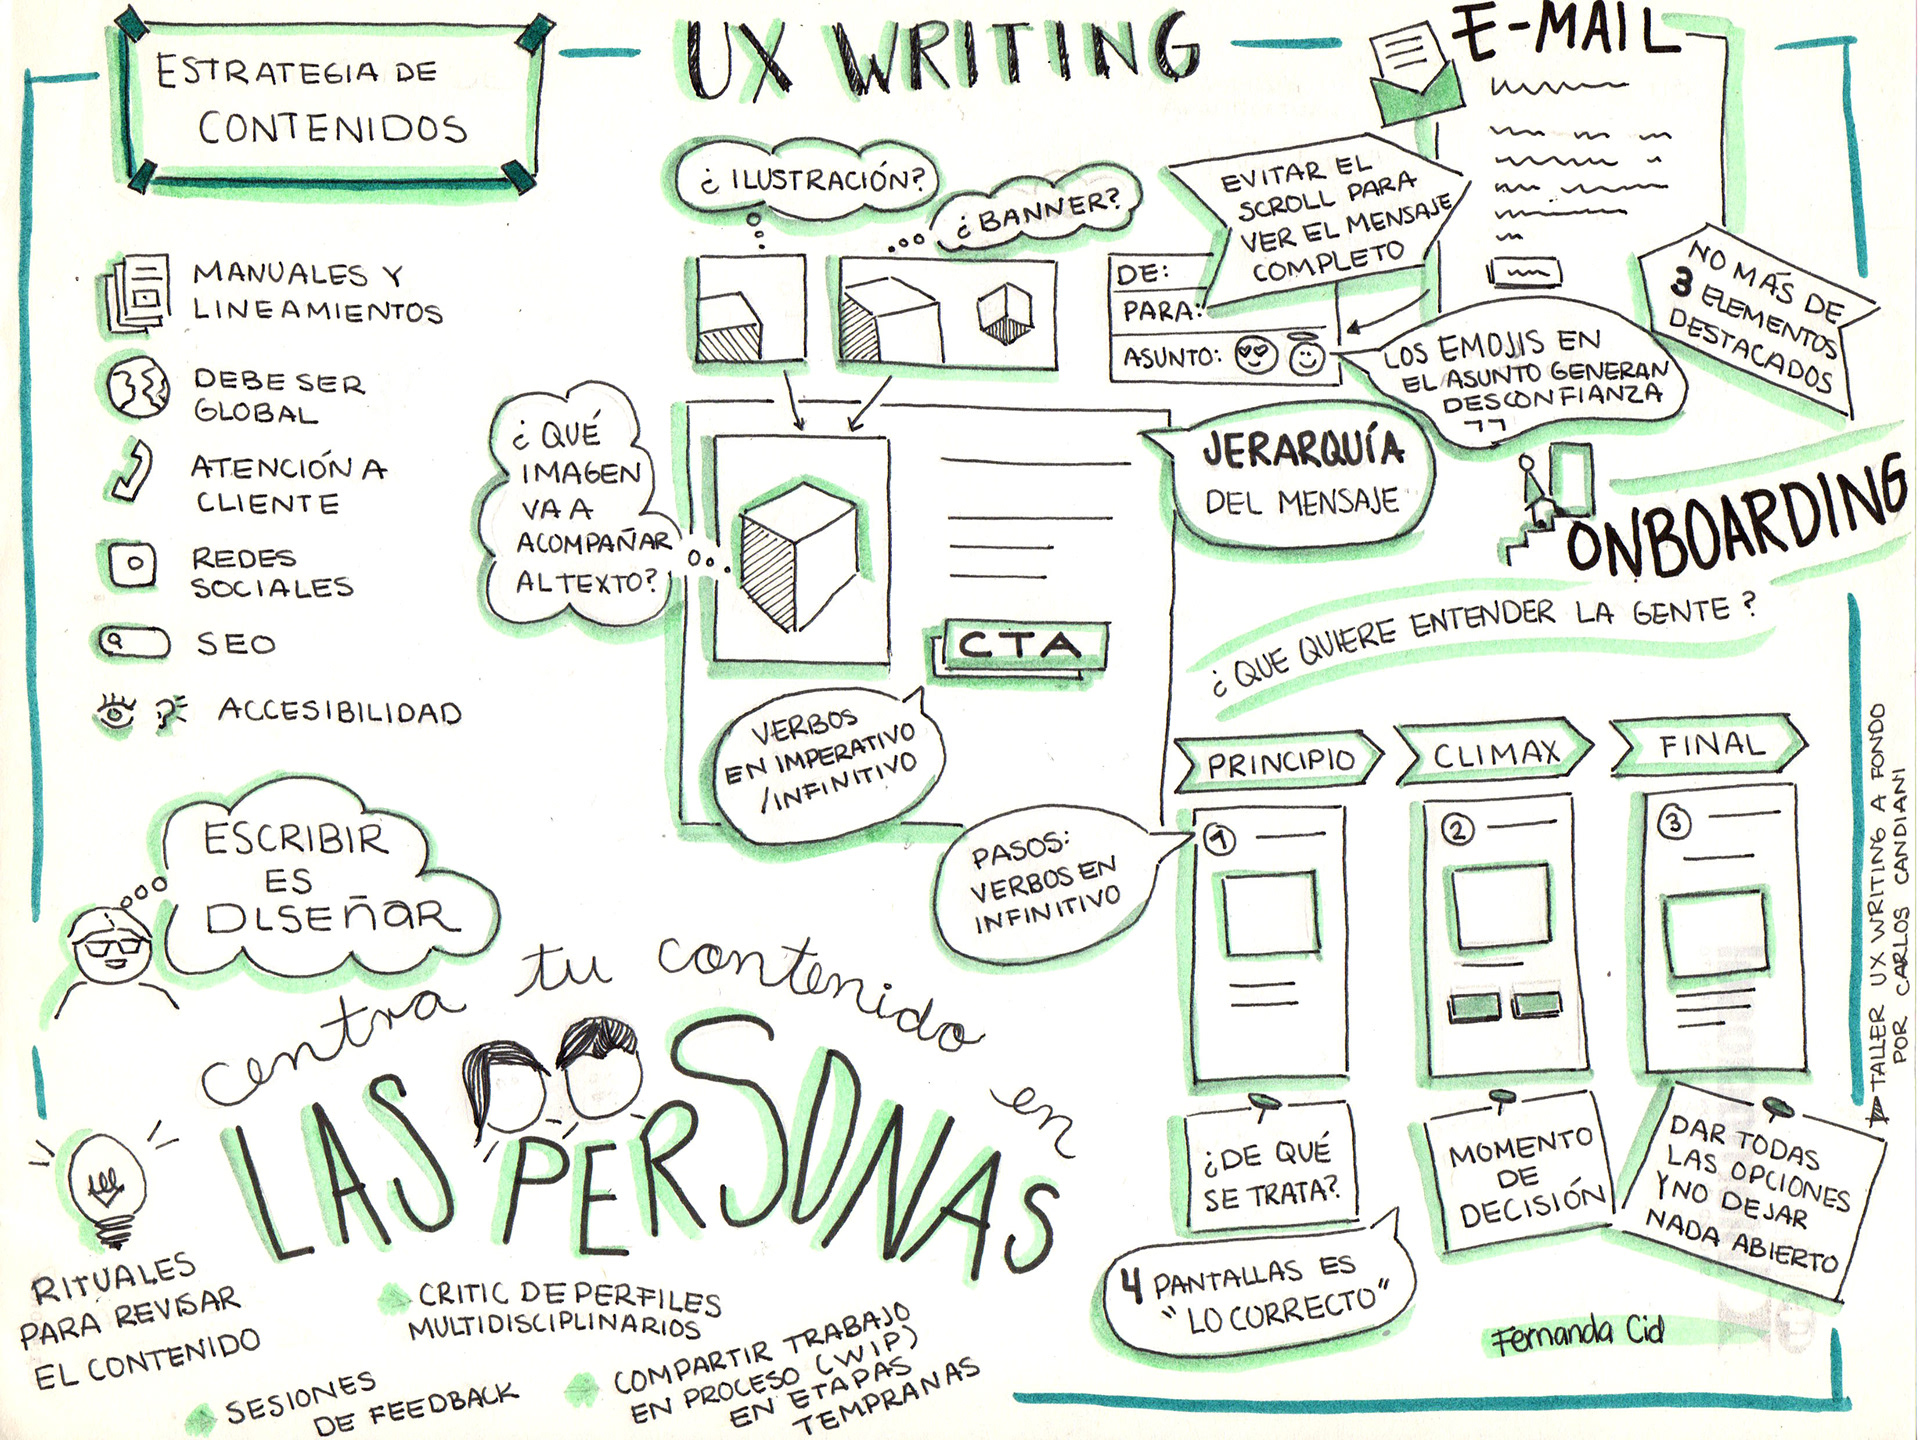 ESTRATEGIA DE
CONTENIDOS
UX WRITING
E-MAIL
MANUALES Y
LINEAMIENTOS
DEBE SER
GLOBAL
ATENCIÓN A
CLIENTE
REDES
SOCIALES
SEO
ACCESIBILIDAD
¿ILUSTRACIÓN?
¿BANNER?
¿QUÉ
IMAGEN
VA A
ACOMPAÑAR
AL TEXTO?
CTA
VERBOS
EN IMPERATIVO
/INFINITIVO
JERARQUÍA
DEL MENSAJE
EVITAR EL
SCROLL PARA
VER EL MENSAJE
COMPLETO
DE:
PARA:
ASUNTO:
LOS EMOJIS EN
EL ASUNTO GENERAN
DESCONFIANZA
NO MÁS DE
3 ELEMENTOS
DESTACADOS
ONBOARDING
¿QUE QUIERE ENTENDER LA GENTE?
PRINCIPIO
CLIMAX
FINAL
1
2
3
PASOS:
VERBOS EN
INFINITIVO
¿DE QUÉ
SE TRATA?
MOMENTO
DE
DECISIÓN
DAR TODAS
LAS OPCIONES
Y NO DEJAR
NADA ABIERTO
4 PANTALLAS ES
"LO CORRECTO"
ESCRIBIR
ES
DISEñAR
centra tu contenido en
LAS PERSONAS
RITUALES
PARA REVISAR
EL CONTENIDO
CRITIC DE PERFILES
MULTIDISCIPLINARIOS
SESIONES
DE FEEDBACK
COMPARTIR TRABAJO
EN PROCESO (WIP)
EN ETAPAS
TEMPRANAS
TALLER UX WRITING A FONDO
POR CARLOS CANDIANI
Fernanda Cid